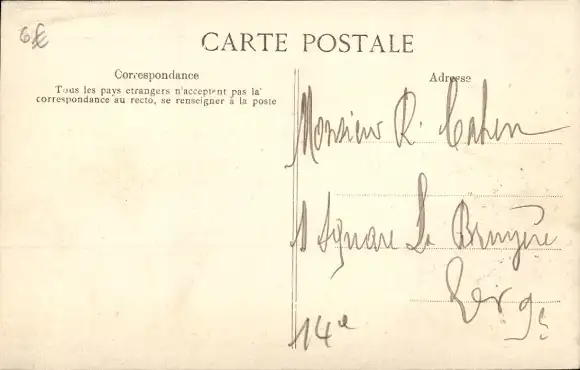 6€
CARTE POSTALE
Correspondance
Tous les pays etrangers n'acceptent pas la
correspondance au recto, se renseigner à la poste
Adresse
Monsieur R. Cahen
1 Square La Bruyère
14e